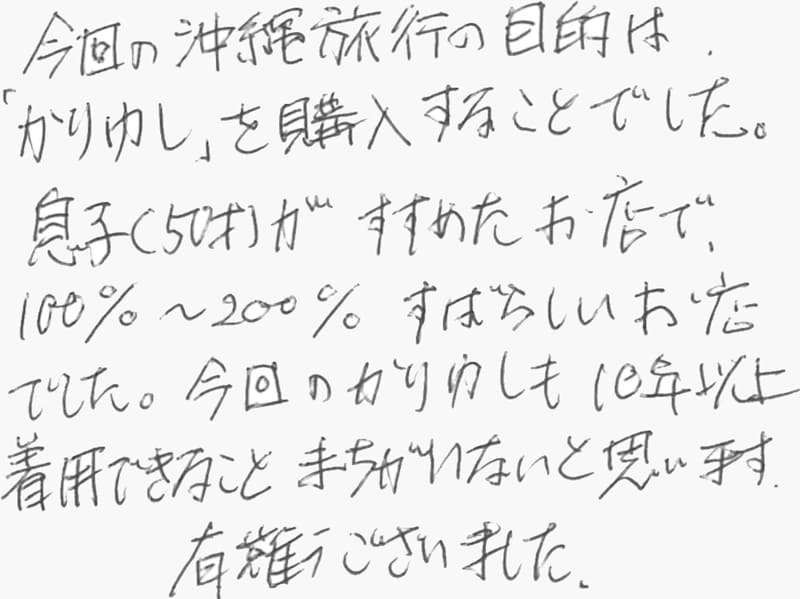 今回の沖縄旅行の目的は、
「かりゆし」を購入することでした。
息子(50才)がすすめたお店で、
100%～200%すばらしいお店
でした。今回のかりゆしも10年以上
着用できることまちがいないと思います。
有難うございました。